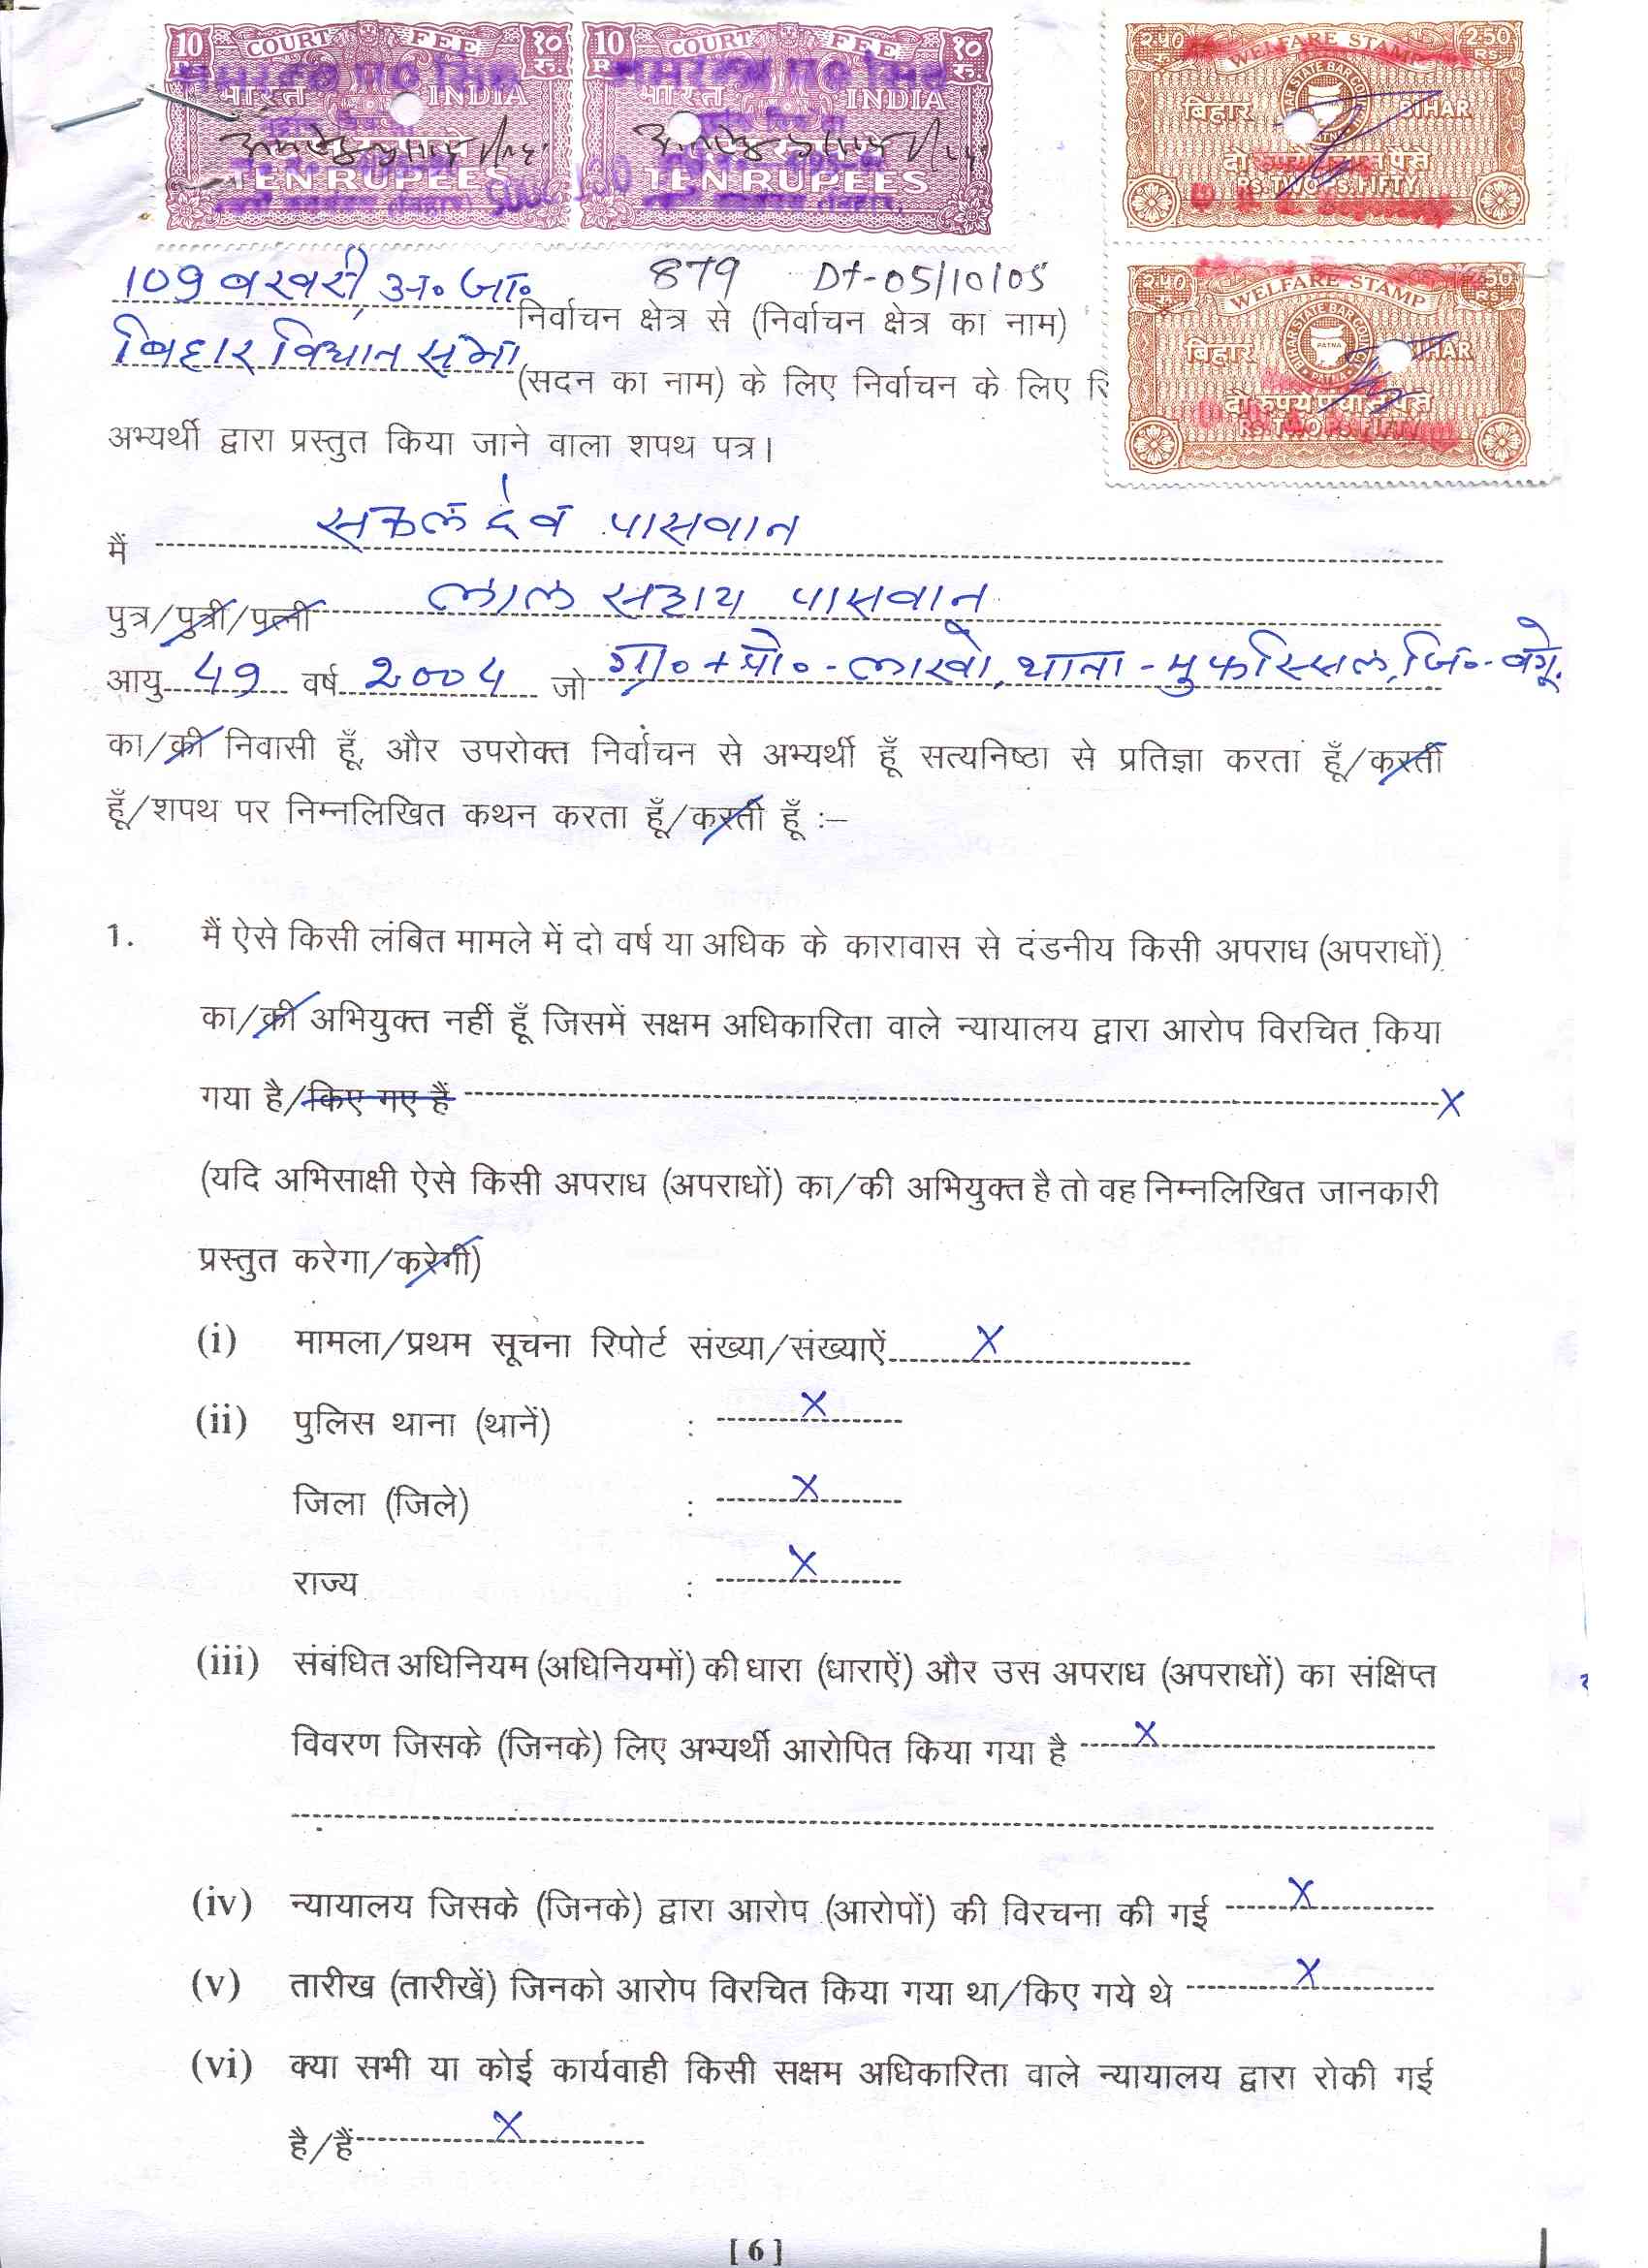 10 COURT FEE १० रु. 10 COURT FEE १० रु.
भारत INDIA भारत INDIA
TEN RUPEES TEN RUPEES
२५० WELFARE STAMP 250 RS
बिहार BIHAR STATE BAR COUNCIL PATNA BIHAR
दो रुपये पचास पैसे
RS. TWO PS. FIFTY
WELFARE STAMP 250 RS
बिहार BIHAR STATE BAR COUNCIL PATNA BIHAR
दो रुपये पचास पैसे
RS. TWO PS. FIFTY
879 Dt-05/10/05
109 बखरी, अ० जा० निर्वाचन क्षेत्र से (निर्वाचन क्षेत्र का नाम)
बिहार विधान सभा (सदन का नाम) के लिए निर्वाचन के लिए
अभ्यर्थी द्वारा प्रस्तुत किया जाने वाला शपथ पत्र।
मैं सकल देव पासवान
पुत्र/पुत्री/पत्नी लाल सहाय पासवान
आयु 49 वर्ष 2004 जो ग्रा०+पो०-लाखो, थाना-मुफस्सिल, जि०-बेगू.
का/की निवासी हूँ, और उपरोक्त निर्वाचन से अभ्यर्थी हूँ सत्यनिष्ठा से प्रतिज्ञा करता हूँ/करती
हूँ/शपथ पर निम्नलिखित कथन करता हूँ/करती हूँ :–
1. मैं ऐसे किसी लंबित मामले में दो वर्ष या अधिक के कारावास से दंडनीय किसी अपराध (अपराधों)
का/की अभियुक्त नहीं हूँ जिसमें सक्षम अधिकारिता वाले न्यायालय द्वारा आरोप विरचित किया
गया है/किए गए हैं X
(यदि अभिसाक्षी ऐसे किसी अपराध (अपराधों) का/की अभियुक्त है तो वह निम्नलिखित जानकारी
प्रस्तुत करेगा/करेगी)
(i) मामला/प्रथम सूचना रिपोर्ट संख्या/संख्याऐं X
(ii) पुलिस थाना (थानें) : X
जिला (जिले) : X
राज्य : X
(iii) संबंधित अधिनियम (अधिनियमों) की धारा (धाराऐं) और उस अपराध (अपराधों) का संक्षिप्त
विवरण जिसके (जिनके) लिए अभ्यर्थी आरोपित किया गया है X
(iv) न्यायालय जिसके (जिनके) द्वारा आरोप (आरोपों) की विरचना की गई X
(v) तारीख (तारीखें) जिनको आरोप विरचित किया गया था/किए गये थे X
(vi) क्या सभी या कोई कार्यवाही किसी सक्षम अधिकारिता वाले न्यायालय द्वारा रोकी गई
है/हैं X
[ 6 ]